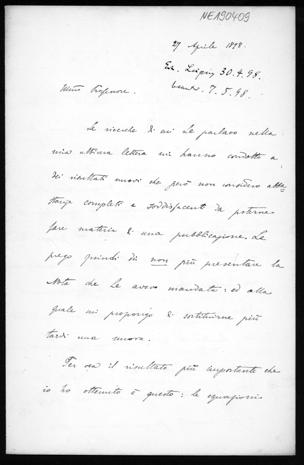 NE190409
27 Aprile 1898
Erh. Leipzig 30.4.98.
7.5.98.
Illmo Professore.
Le ricerche di cui Le parlavo nella
mia ultima lettera mi hanno condotto a
dei risultati nuovi che però non considero abba-
stanza completi e soddisfacenti da poterne
fare materia di una pubblicazione. La
prego quindi di non più presentare la
Nota che Le avevo mandata: ed alla
quale mi propongo di sostituirne più
tardi una nuova.
Per ora il risultato più importante che
io ho ottenuto è questo: le equazioni